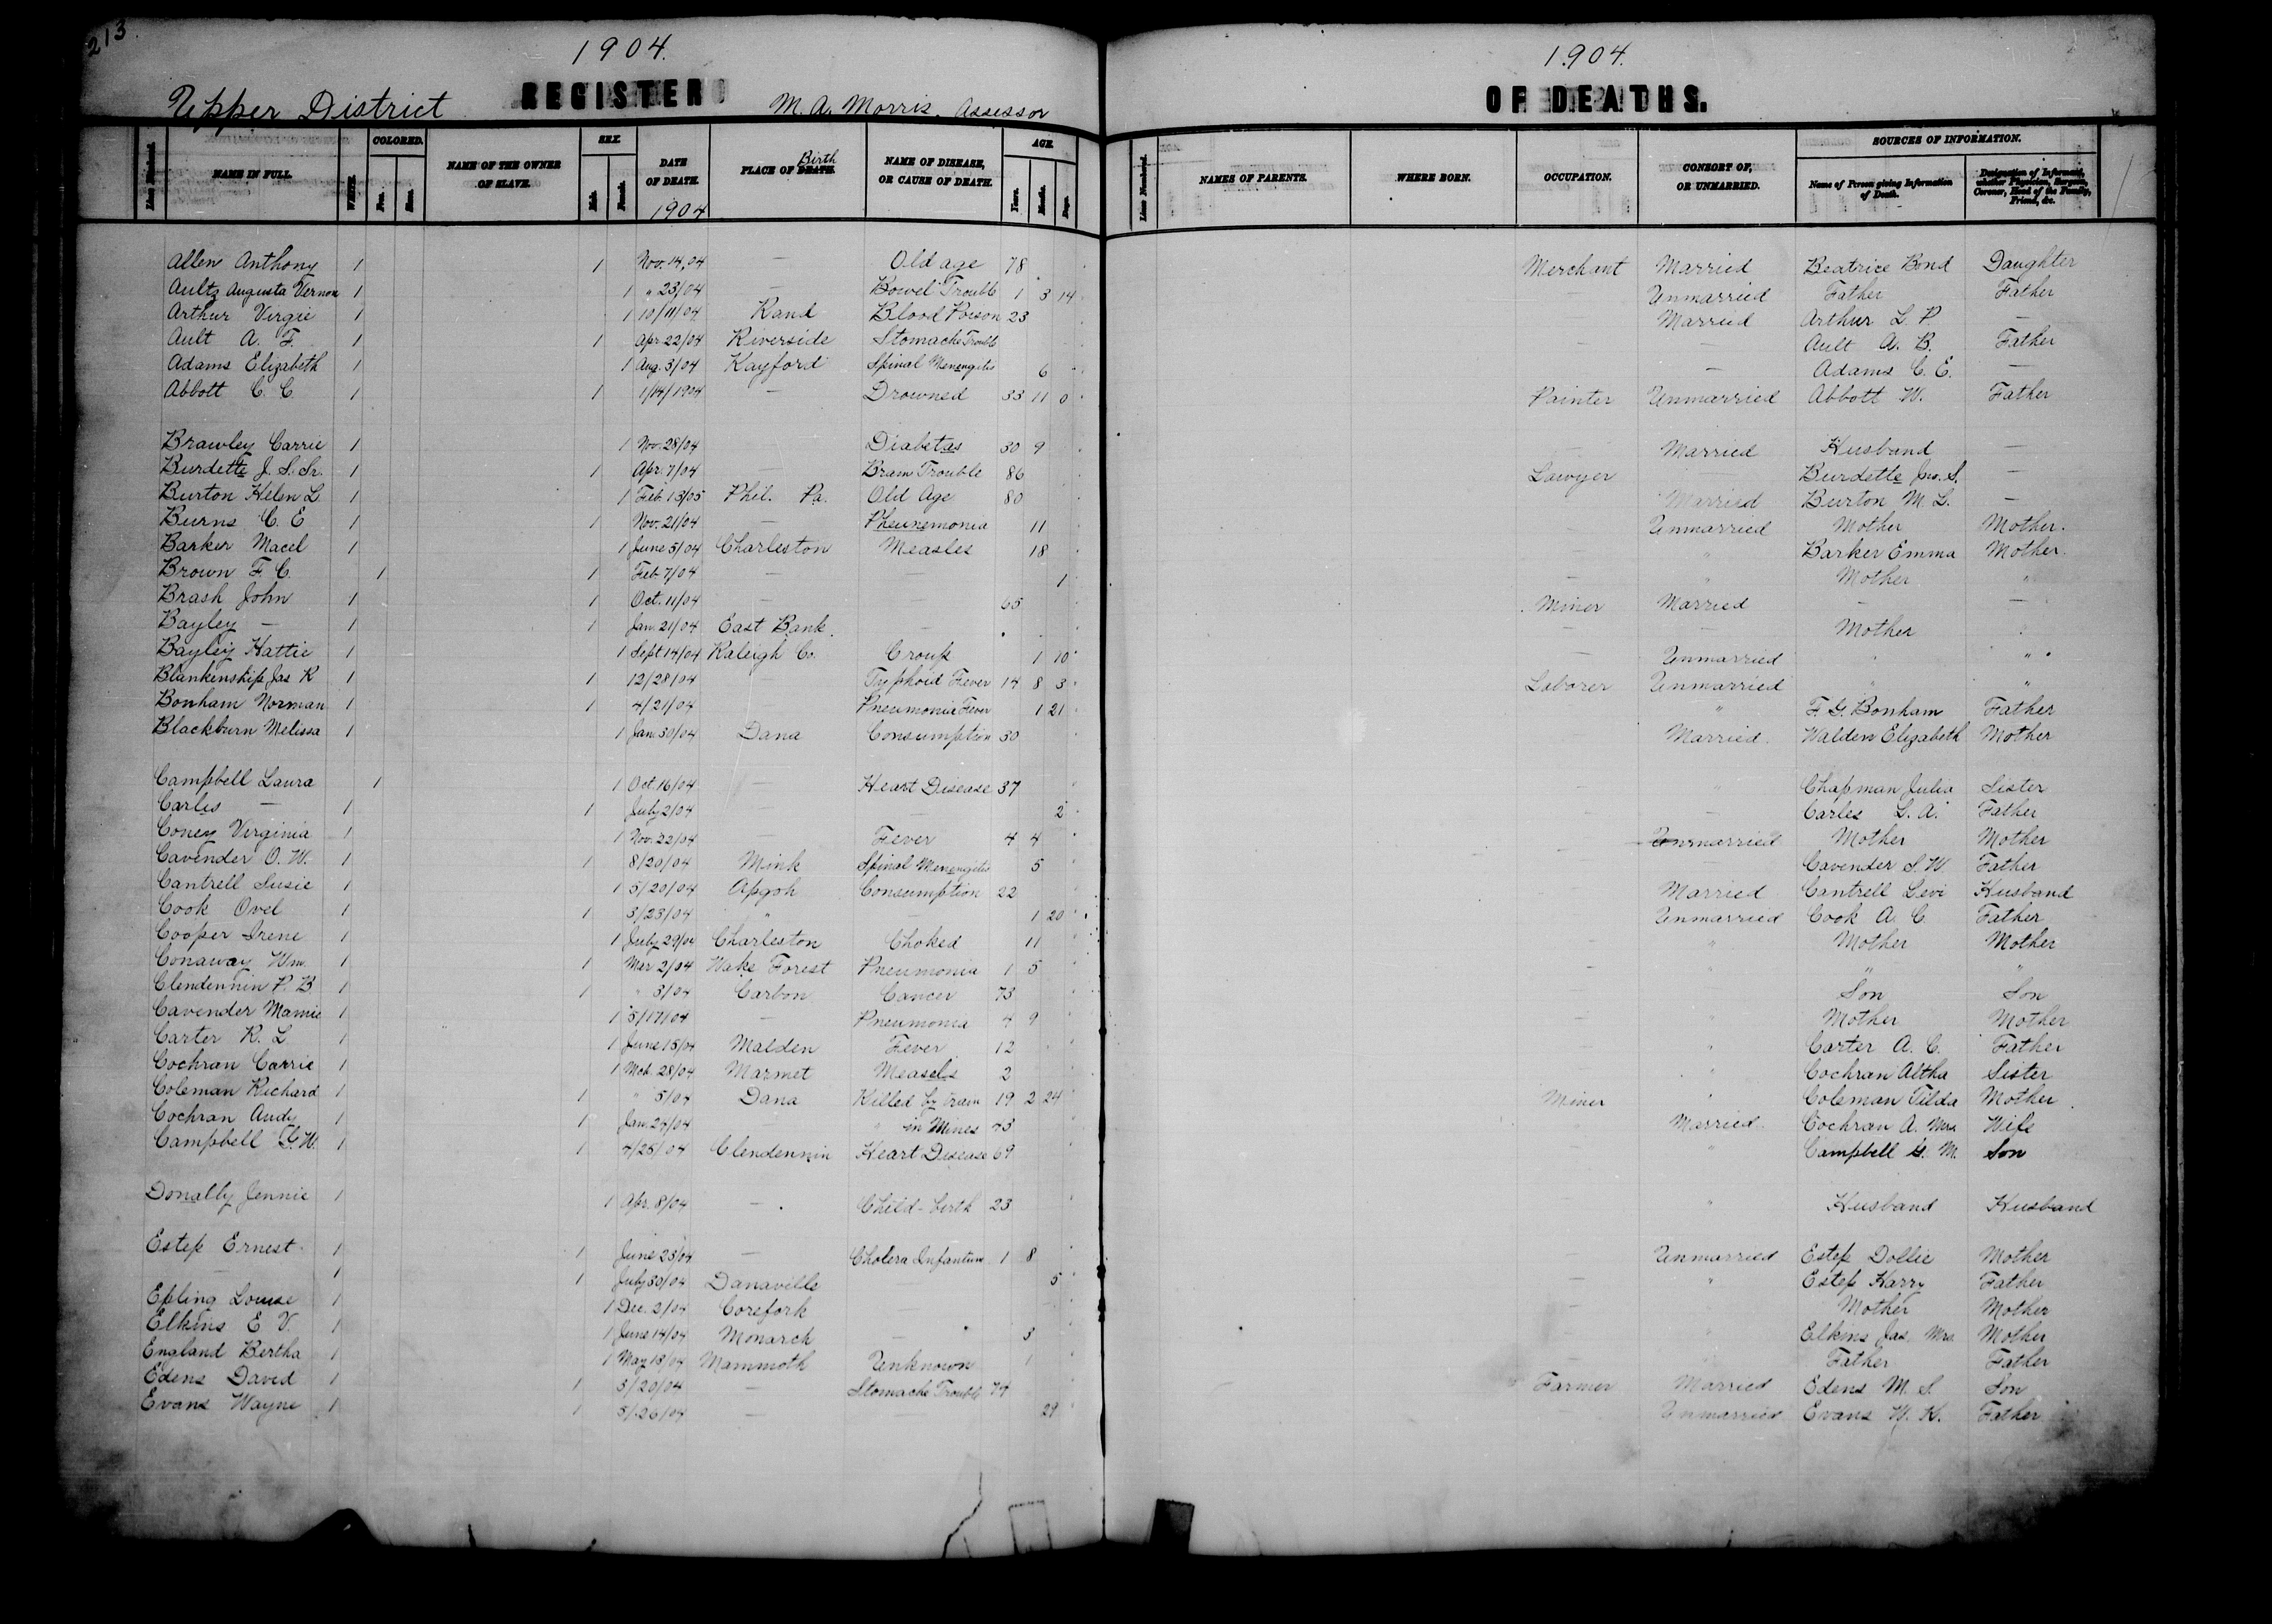 213
1904. 1904.
Upper District REGISTER M. A. Morris, Assessor OF DEATHS.
Lines Numbered. NAME IN FULL. WHITE. COLORED. Free. Slave. NAME OF THE OWNER OF SLAVE. SEX. Male. Female. DATE OF DEATH. 1904 PLACE OF DEATH. Birth NAME OF DISEASE, OR CAUSE OF DEATH. AGE. Years. Months. Days. Lines Numbered. NAMES OF PARENTS. WHERE BORN. OCCUPATION. CONSORT OF, OR UNMARRIED. SOURCES OF INFORMATION. Name of Person giving Information of Death. Designation of Informant, whether Physician, Surgeon, Coroner, Head of the Family, Friend, &c.
Allen Anthony 1 1 Nov. 14, 04 — Old age 78 Merchant Married Beatrice Bond Daughter
Aultz Augusta Vernon 1 1 " 23/04 — Bowel Trouble 1 3 14 Unmarried Father Father
Arthur Virgie 1 1 10/11/04 Rand Blood Poison 23 Married Arthur L. P. —
Ault A. F. 1 1 Apr 22/04 Riverside Stomache Trouble — — Ault A. B. Father
Adams Elizabeth 1 1 Aug. 3/04 Kayford Spinal Menengitis 6 — Adams C. E. —
Abbott C. C 1 1 1/14/1904 — Drowned 33 11 0 Painter Unmarried Abbott W. Father
Brawley Carrie 1 1 Nov. 28/04 Diabetas 30 9 — Married Husband —
Burdette J. S. Sr. 1 1 Apr. 7/04 — Brain Trouble 86 Lawyer Burdette Jno. S. —
Burton Helen L. 1 1 Feb. 13/05 Phil. Pa. Old Age 80 Married Burton M. L. —
Burns C. E 1 1 Nov. 21/04 — Pheunemonia 11 Unmarried Mother Mother.
Barker Macel 1 1 June 5/04 Charleston Measles 18 — " Barker Emma Mother.
Brown F. C. 1 1 Feb 7/04 — 1 — " Mother "
Brash John 1 1 Oct. 11/04 — 65 Miner Married — —
Bayley — 1 1 Jan. 21/04 East Bank. — — — Mother
Bayley Hattie 1 1 Sept 14/04 Raleigh Co. Croup 1 10 — Unmarried " "
Blankenship Jas K 1 1 12/28/04 — Typhoid Fever 14 8 3 Laborer Unmarried " "
Bonham Norman 1 1 4/21/04 Pneumonia Fever 1 21 " F. G. Bonham Father
Blackburn Melissa 1 1 Jan. 30/04 Dana Consumption 30 Married. Walden Elizabeth Mother
Campbell Laura 1 1 Oct. 16/04 — Heart Disease 37 — " Chapman Julia Sister
Carles — 1 1 July 2/04 — — 2 — — Carles L. A. Father
Coney Virginia 1 1 Nov. 22/04 — Fever 4 4 — Unmarried Mother Mother
Cavender O. W. 1 1 8/20/04 Mink Spinal Menengitis 5 — — Cavender S. W. Father
Cantrell Susie 1 1 5/20/04 Apgoh Consumption 22 Married Cantrell Levi Husband
Cook Ovel 1 1 3/23/04 " — 1 20 Unmarried Cook A. C. Father
Cooper Irene 1 1 July 29/04 Charleston Choked 11 — " Mother Mother
Conaway Wm. 1 1 Mar 2/04 Wake Forest Pneumonia 1 5 — " " "
Clendennin P. B 1 1 " 3/04 Carbon Cancer 73 — " Son Son
Cavender Mamie 1 1 5/17/04 — Pneumonia 4 9 — " Mother Mother
Carter R. L 1 1 June 15/04 Malden Fever 12 — " Carter A. C. Father
Cochran Carrie 1 1 Mch. 28/04 Marmet Measels 2 " Cochran Altha Sister
Coleman Richard 1 1 " 5/04 Dana Killed by train 19 2 24 Miner " Coleman Tilda Mother
Cochran Andy 1 1 Jan. 29/04 — " in Mines 43 " Married. Cochran A. Mrs Wife
Campbell G. W. 1 1 4/25/04 Clendennin Heart Disease 69 " Campbell G. M. Son
Donally Jennie 1 1 Apr. 8/04 — Child-birth 23 — " Husband Husband
Estep Ernest 1 1 June 23/04 — Cholera Infantum 1 8 Unmarried Estep Dollie Mother
— 1 1 July 30/04 Danaville — 5 — " Estep Harry Father
Epling Louise 1 1 Dec. 2/04 Corefork — — Mother Mother
Elkins E V. 1 1 June 14/04 Monarch — 3 — " Elkins Jas. Mrs. Mother
England Bertha 1 1 May 18/04 Mammoth Unknown 1 — " Father Father
Edens David 1 1 3/20/04 — Stomache Trouble 74 Farmer Married Edens M. S. Son
Evans Wayne 1 1 5/26/04 — — 29 — Unmarried Evans W. K. Father